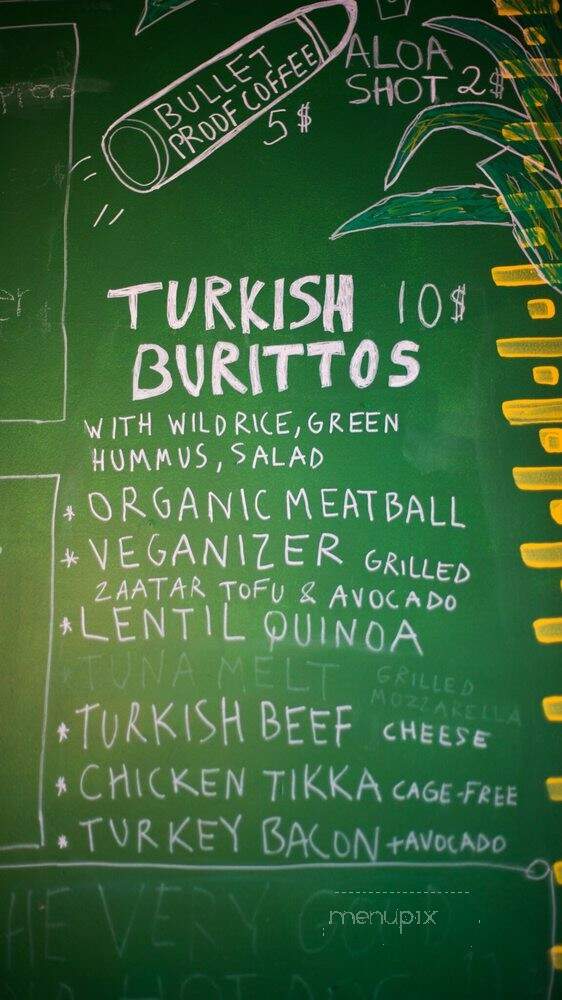 BULLET
PROOF COFFEE
5$
ALOA
SHOT 2$
TURKISH 10$
BURITTOS
WITH WILD RICE, GREEN
HUMMUS, SALAD
* ORGANIC MEATBALL
* VEGANIZER GRILLED
ZAATAR TOFU & AVOCADO
* LENTIL QUINOA
* TUNA MELT GRILLED
MOZZARELLA
* TURKISH BEEF CHEESE
* CHICKEN TIKKA CAGE-FREE
* TURKEY BACON +AVOCADO
HE VERY
menupix